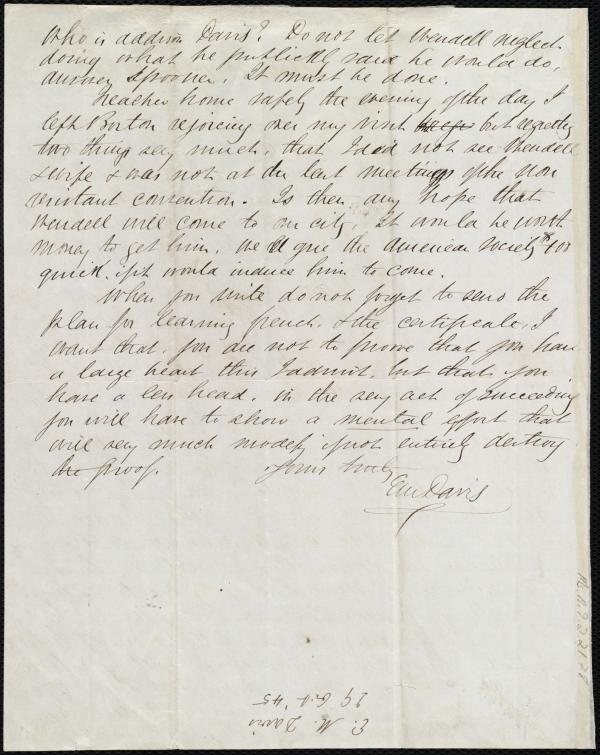 Who is addison Davis? Do not let Wendell neglect
doing what he publickly said he would do,
answer Spooner. It must be done.
Reached home safely the evening of the day I
left Boston rejoicing over my visit but regretting
two things very much, that I did not see Wendell
& wife & was not at the last meeting of the Non
resistant convention. Is there any hope that
Wendell will come to our city, it would be worth
money to get him. We'd give the American Society $100
quick if it would induce him to come.
When you write do not forget to send the
plan for learning french. & the certificate, I
want that. you are not to prove that you have
a large heart this I admit, but that you
have a less head. in the very act of succeeding
you will have to show a mental effort that
will very much modify if not entirely destroy
the proof. Yours truly
E M Davis
Ms.A.9.2.21.78
E. M. Davis
29 '45